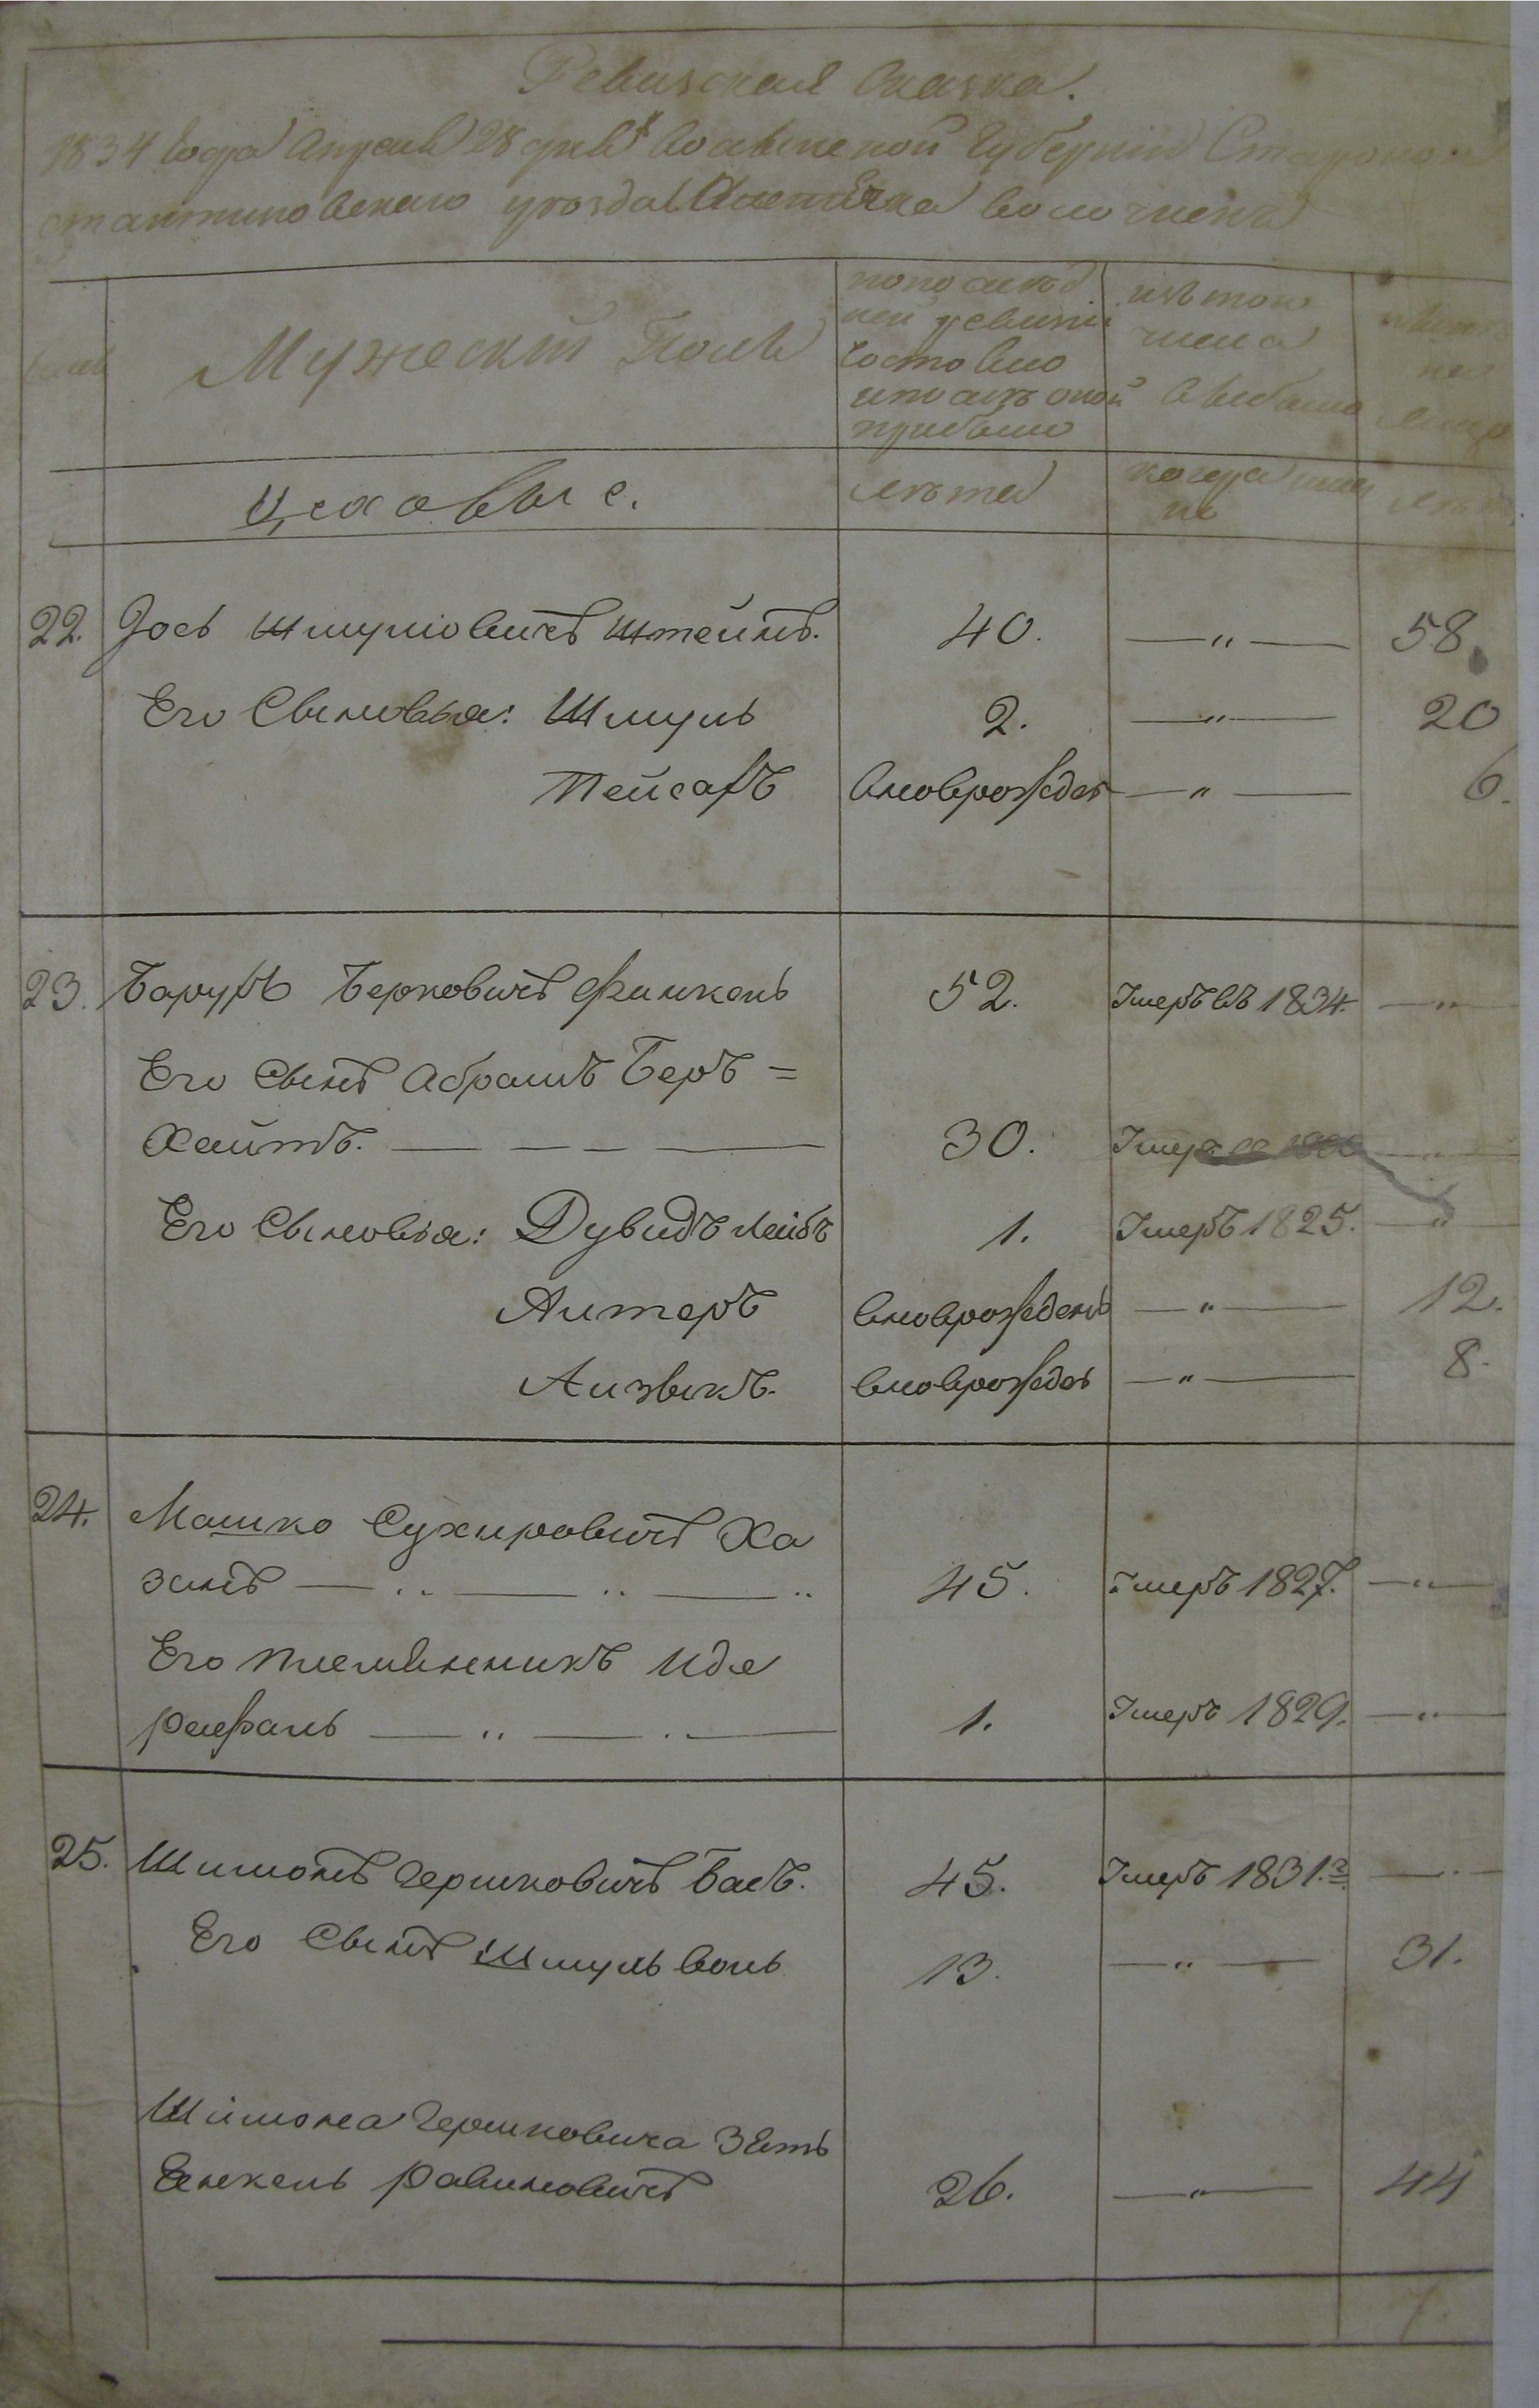 Ревизская Сказка.
1834 года Апреля 28 дня Волынской Губернии Старокон
стантиновскаго уезда местечка волочиска
Мужеский Полъ
по послед
ней ревизіи
состояло
и после оной
прибыло
изъ того
числа
выбыло
ныне
лицо
Цеховые.
лета
когда имен
но
лета
22. Іось Шмуліовичъ Штейнъ. 40. —„— 58.
Его Сыновья: Шмуль 2. —„— 20
Пейсахъ вновърожден —„— 6.
23. Барухъ Берковичъ Финкель 52. Умеръ въ 1834. —„—
Его Сынъ Абрамъ Беръ =
Хаимъ. — — — 30. Умеръ —„—
Его Сыновья: Дувидъ Лейбъ 1. Умеръ 1825. —„—
Алтеръ вновърожденъ —„— 12.
Аизыкъ. вновърожден —„— 8.
24. Мошко Сухировичъ Ха
зинъ — „ — „ — „ 45. Умеръ 1827. —„—
Его племянникъ Идя
Рафаль — „ — „ — 1. Умеръ 1829. —„—
25. Шимонъ Гершковичъ Басъ. 45. Умеръ 1831. г —„—
Его Сынъ Шмуль Воль 13. —„— 31.
Шимона Гершковича Зять
Енкель Рабиновичъ 26. —„— 44